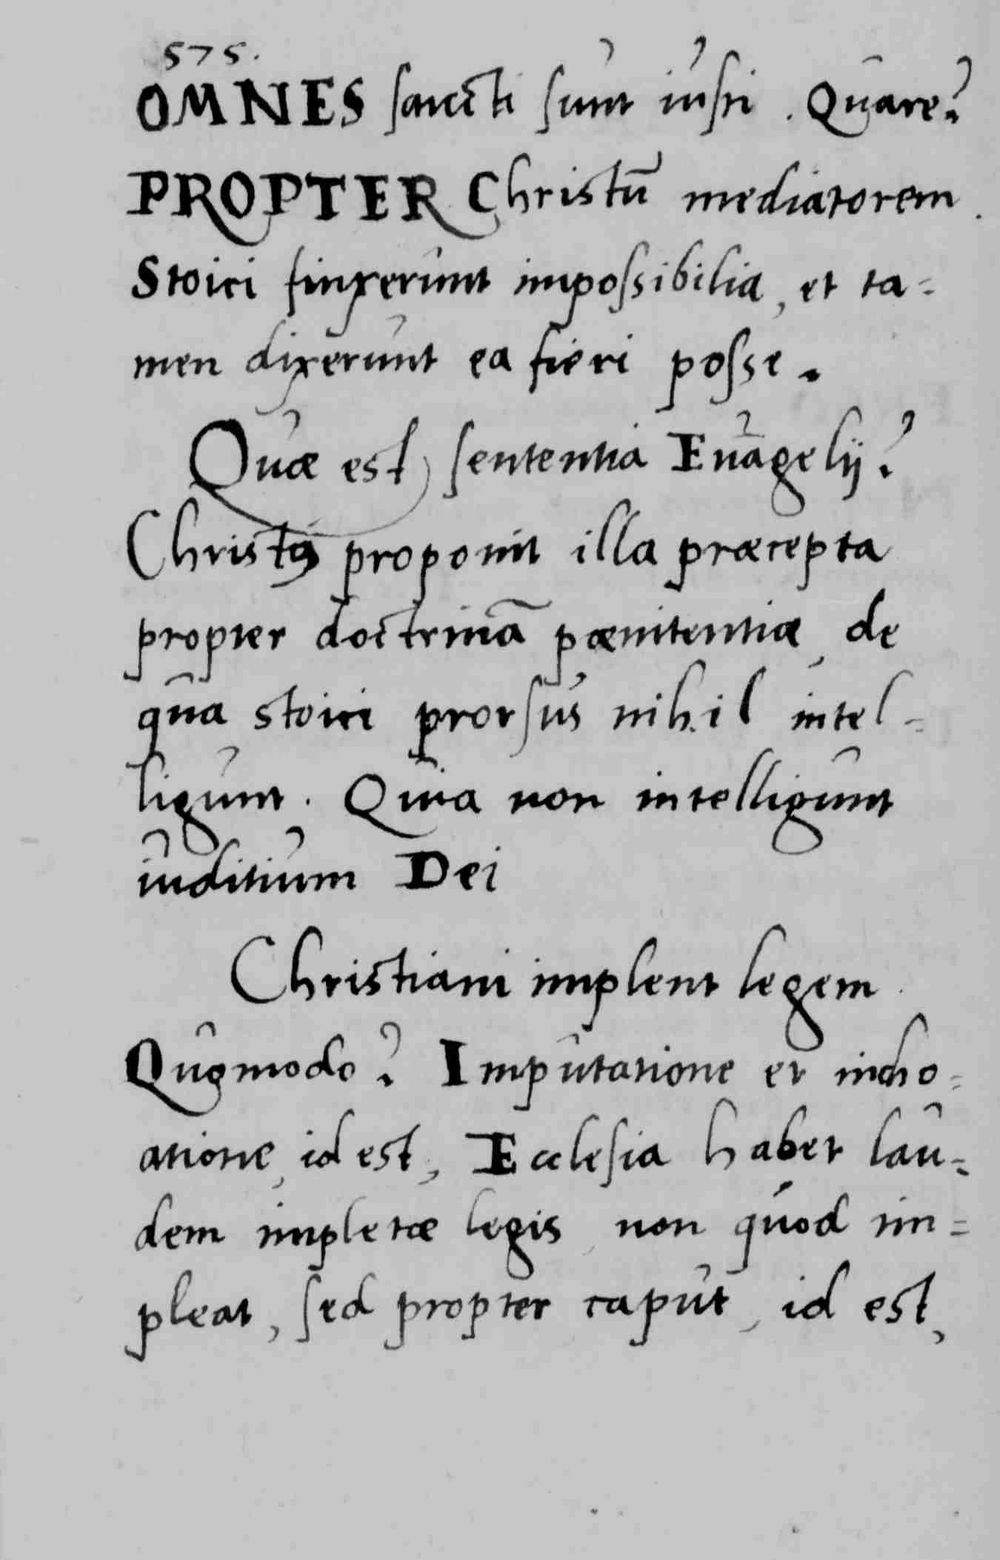 575.
OMNES sancti sunt iusti. Quare?
PROPTER Christū mediatorem.
Stoici finxerunt impossibilia, et ta=
men dixerunt ea fieri posse.
Quæ est sententia Euāgelij?
Christꝰ proponit illa præcepta
propter doctrinā pænitentiæ, de
qua stoici prorsus nihil intel=
ligunt. Quia non intelligunt
iuditium Dei
Christiani implent legem.
Quomodo? Imputatione et incho=
atione, id est, Ecclesia habet lau=
dem impletæ legis, non quod im=
pleat, sed propter caput, id est,